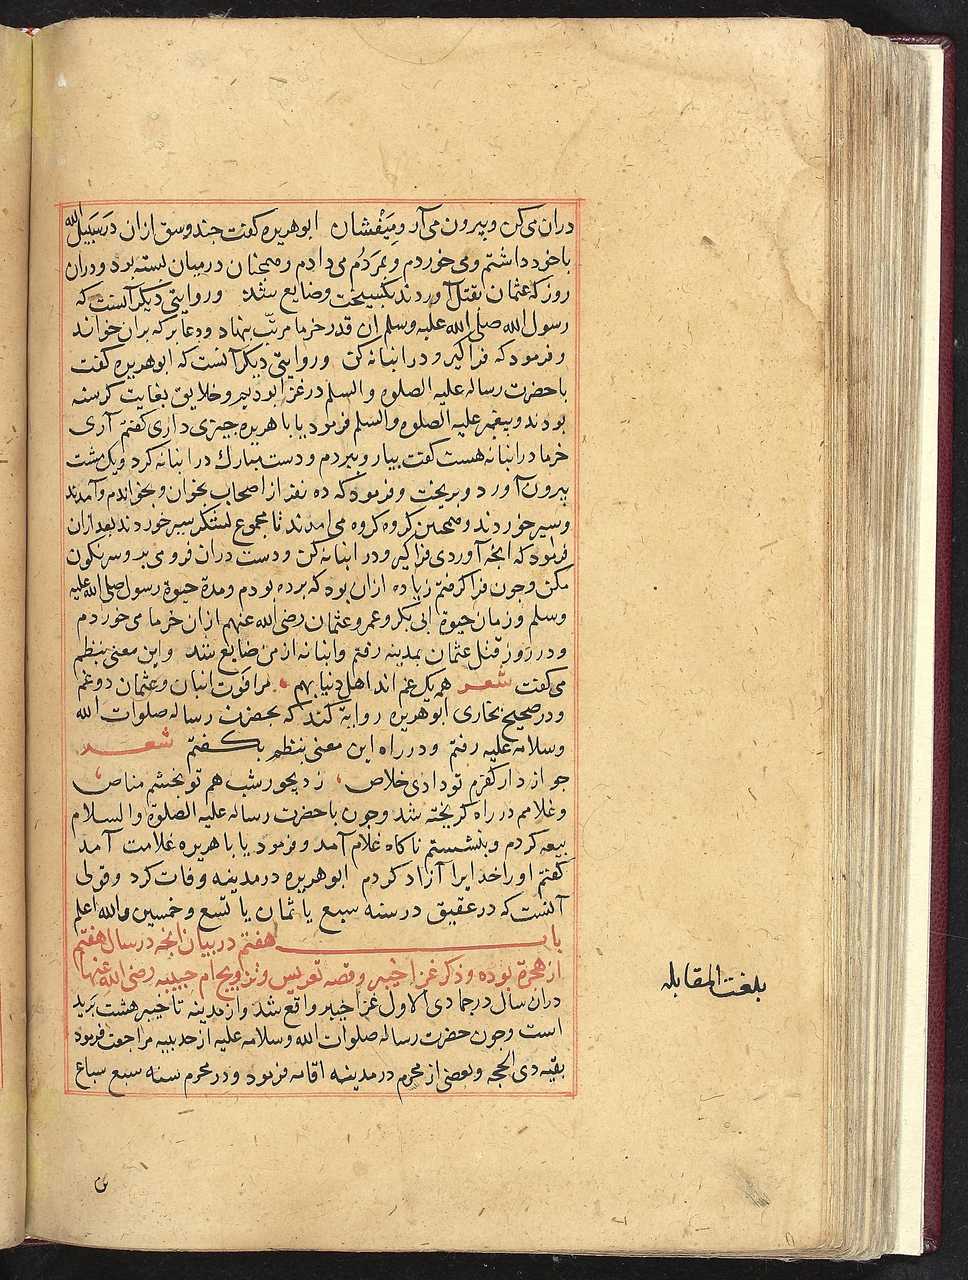 دران می کن و بیرون می آر و مَیَفْشان ابو هریره کفت چند وسق ازان در سَبَیل الله
با خود داشتم و می خوردم و بمَردُم می دادم و همچنان در میان بسته بود و دران
روز که عثمان بقتل آوردند بکسیخت و ضایع شد و روایتی دیکر آنست که
رسول الله صلی الله علیه وسلم ان قدر خرما مرتّب بنهاد و دعا برکه بران خواند
و فرمود که فراکیر و در ابنانه کن و روایتی دیکر آنست که ابو هریره کفت
با حضرت رساله علیه الصلوه والسلم در غزا بودیم و خلایق بغایت کرسنه
بودند و پیغمبر علیه الصلوه والسلم فرمود یابا هریره چیزی داری کفتم آری
خرما در ابنانه هست کفت بیار و ببردم و دست مبارك در ابنانه کرد و یک مشت
بیرون آورد و بریخت و فرمود که ده نفر از اصحاب بخوان و بخواندم و آمدند
و سیر خوردند و همچنین کروه کروه می امدند تا مجموع لشکر سیر خوردند بعد ازان
فرمود که انجه آوردی فراکیر و در ابنانه کن و دست دران فرو می بر و سرنکون
مکن و چون فراکرفتم زیاده ازان بود که برده بودم و مدة حیوة رسول صلی الله علیه
وسلم و زمان حیوة ابی بکر و عمر و عثمان رضی الله عنهم ازان خرما می خوردم
و در روز قتل عثمان بمدینه رفتم و ابنانه از من ضایع شد و این معنی بنظم
می کفت شعر همه یک غم اند اهل دنیا بهم مرا فوت انبان و عثمان دو غم
و در صحیح بخاری ابو هریره روایة کند که بحضرت رساله صلوات الله
وسلامه علیه رفتم و در راه این معنی بنظم بکفتم شعر
چو از دار کفرم تو دادی خلاص ز دیجور شب هم تو بخشم مناص
و غلامم در راه کریخته شد و چون با حضرت رساله علیه الصلوة والسلام
بیعه کردم و بنشستم ناکاه غلام آمد و فرمود یابا هریره غلامت آمد
کفتم او را خدایرا آزاد کردم ابو هریره در مدینه وفات کرد و قولی
آنست که در عقیق در سنه سبع یا ثمان یا تسع و خمسین والله اعلم
باب هفتم در بیان انجه در سال هفتم
از هجرة بوده و ذکر غزا خیبر و قصه تعریس و تزویج ام حبیبه رضی الله عنها
دران سال در جمادی الاول غزا خیبر واقع شد و از مدینه تا خیبر هشت بَرید
است و چون حضرت رساله صلوات الله وسلامه علیه از حدیبیه مراجعت فرمود
بقیه ذی الحجه و بعضی از محرم در مدینه اقامه فرمود و در محرم سنه سبع سباع
بلغت المقابله